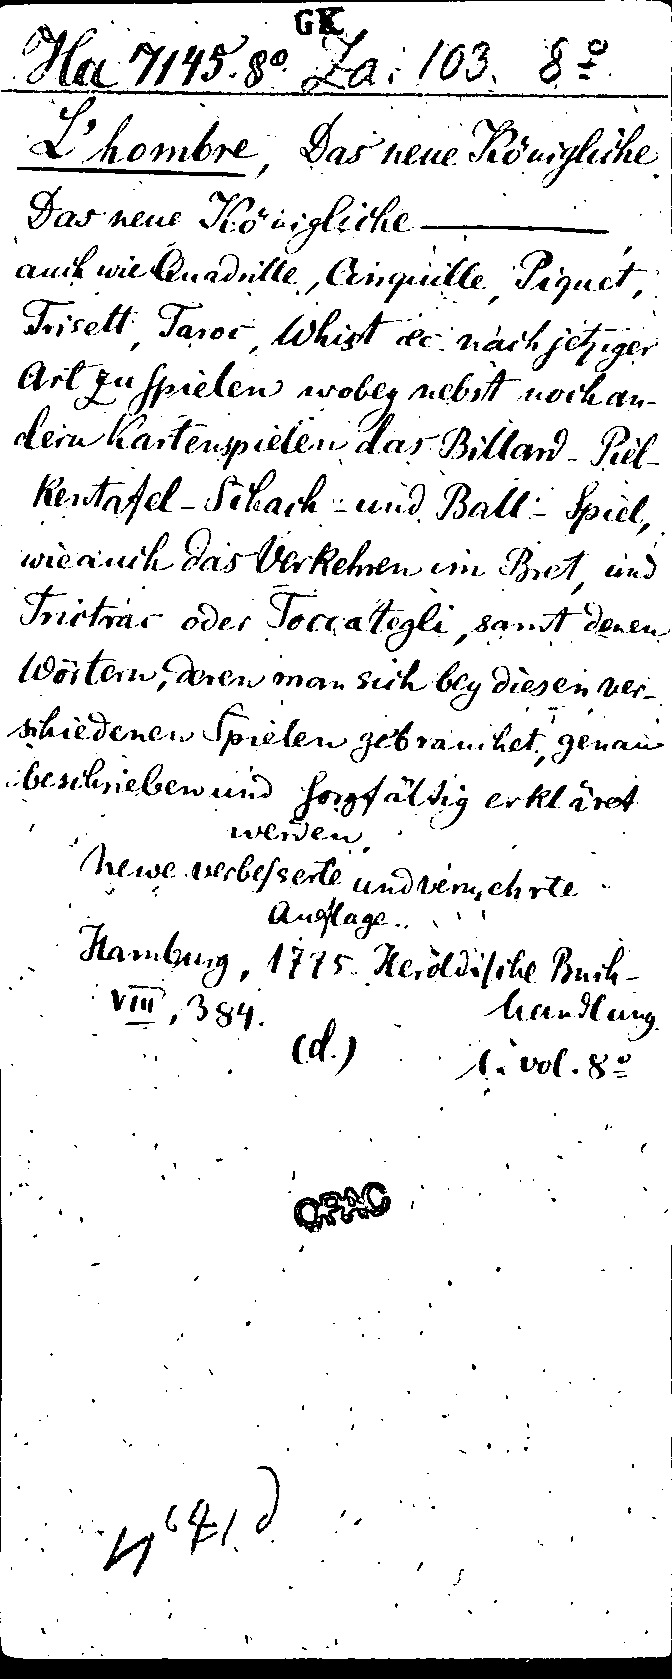 GK
Ha 7145.8º Za: 103. 8º
L'hombre, Das neue Königliche
Das neue Königliche ———,
auch wie Quadrille, Cinquille, Piquet,
Trisett, Taroc, Whist &c. nach jetziger
Art zu spielen wobey nebst noch an-
dern Kartenspielen das Billard- Piel-
kentafel- Schach- und Ball- Spiel,
wie auch das Verkehren im Bret, und
Trictrac oder Toccategli, samt denen
Wörtern, deren man sich bey diesen ver-
schiedenen Spielen gebrauchet, genau
beschrieben und sorgfältig erkläret
werden.
Neue verbesserte und vermehrte
Auflage.
Hamburg, 1775. Heroldische Buch-
handlung
VIII, 384.
(d.)
1. vol. 8º